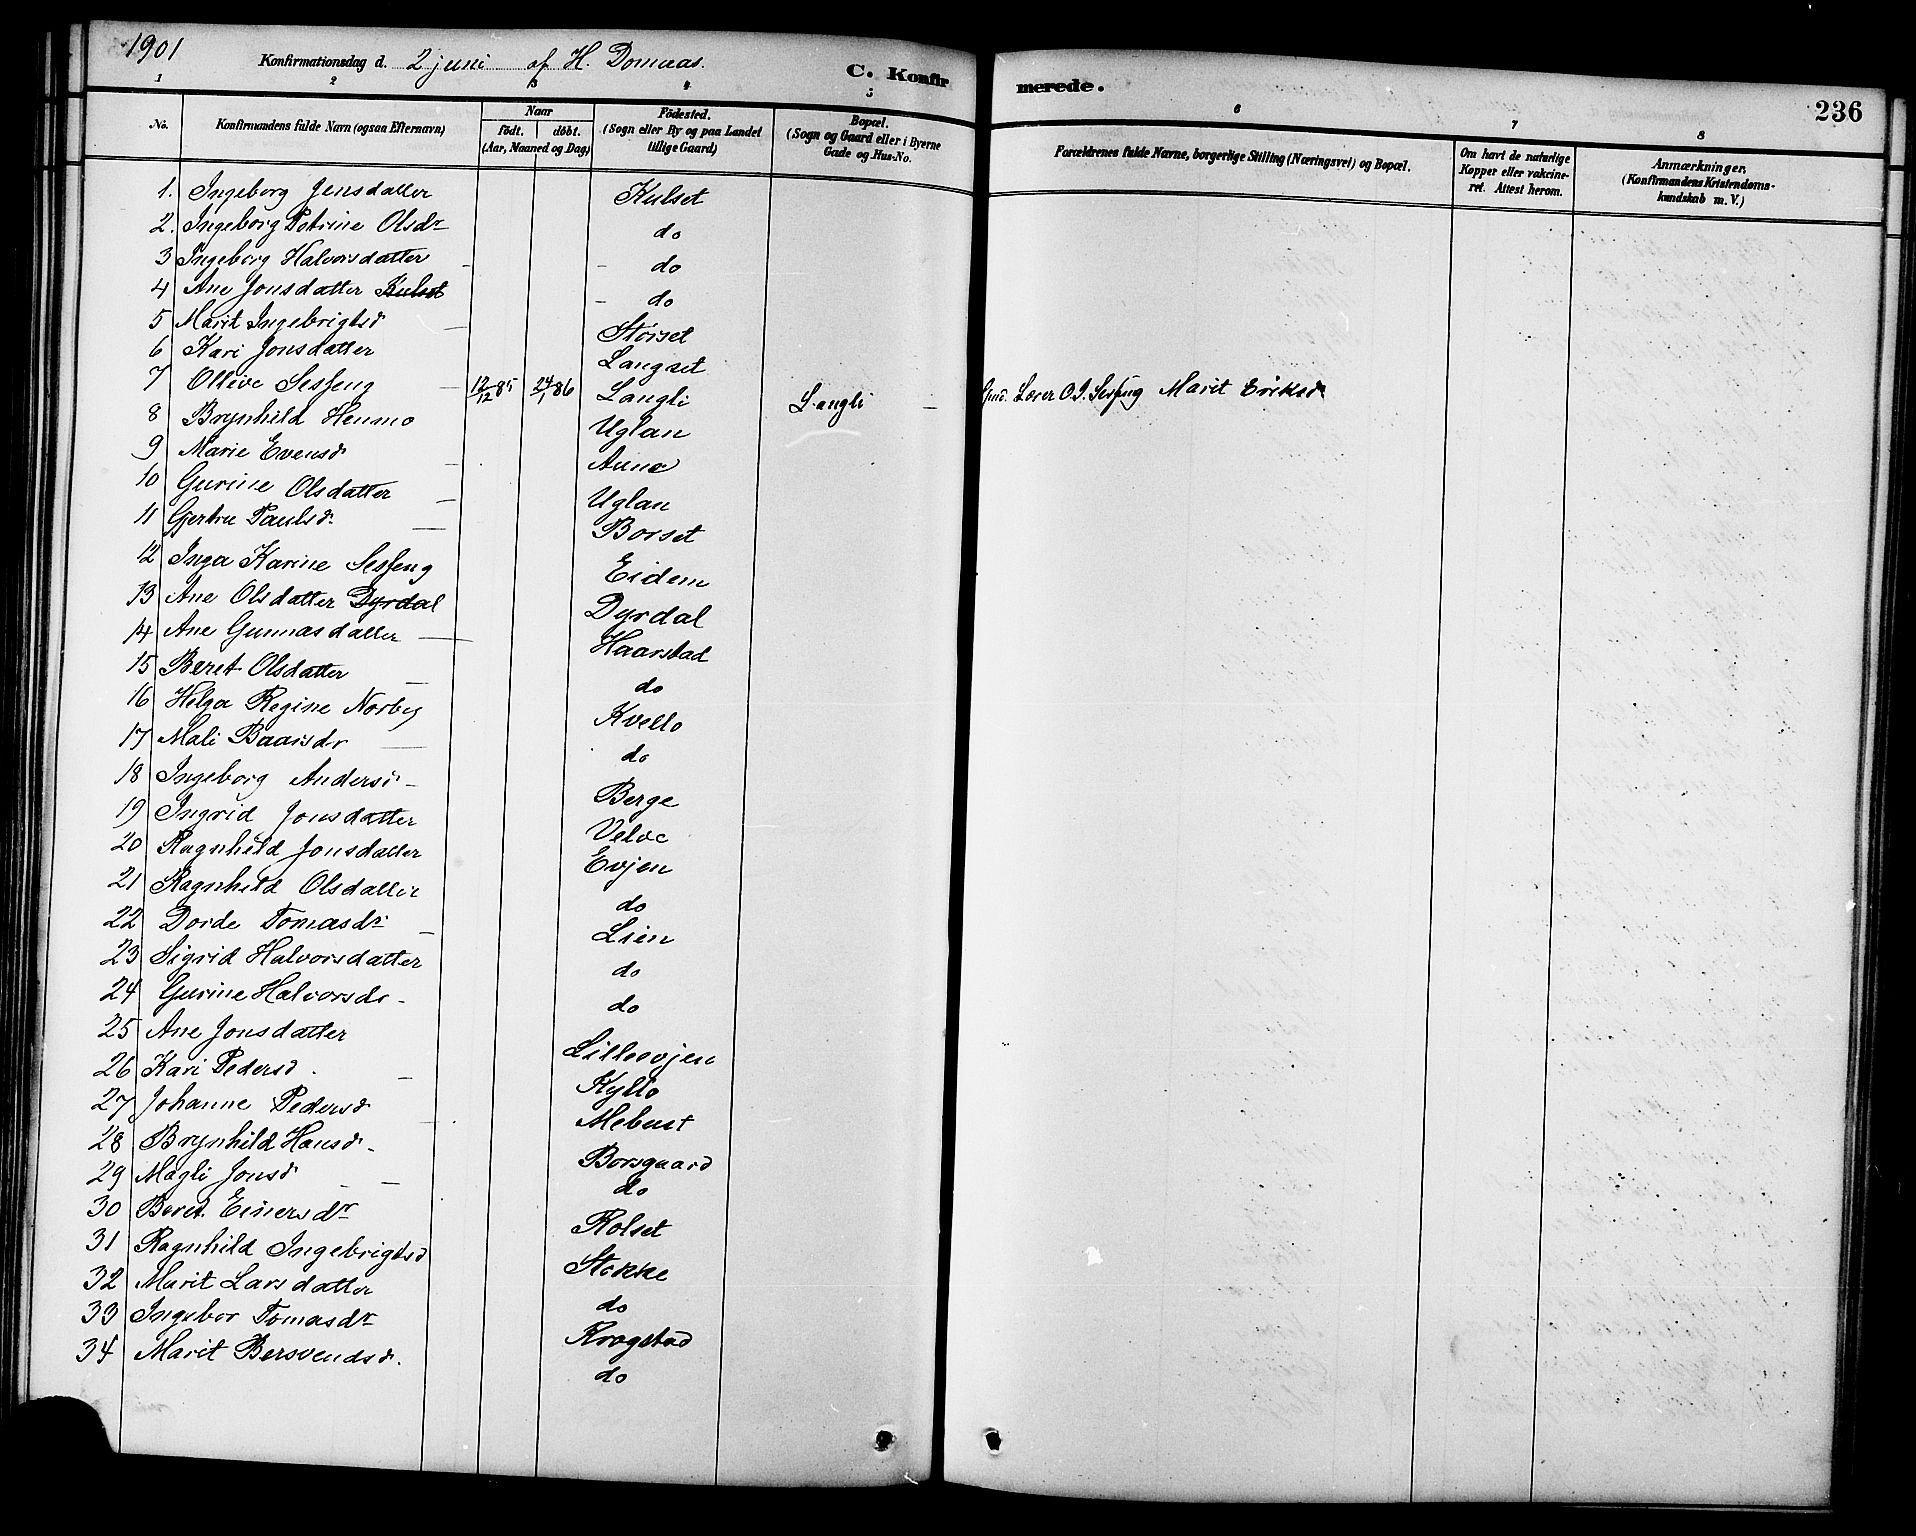 1901
Konfirmationsdag d. 2 juni af H. Domaas.
C. Konfirmerede.
236
1 2 3 4 5 6 7 8
No.
Konfirmandens fulde Navn (ogsaa Efternavn)
Naar
født. døbt.
(Aar, Maaned og Dag)
Fødested.
(Sogn eller By og paa Landet
tillige Gaard)
Bopæl.
(Sogn og Gaard eller i Byerne
Gade og Hus-No.
Forældrenes fulde Navne, borgerlige Stilling (Næringsvei) og Bopæl.
Om havt de naturlige
Kopper eller vakcine-
ret. Attest herom.
Anmærkninger.
(Konfirmandens Kristendoms-
kundskab m. V.)
1. Ingeborg Jensdatter Kulset
2. Ingeborg Petrine Olsdr do
3 Ingeborg Halvorsdatter - - do
4 Ane Jonsdatter Kulset - do
5 Marit Ingebrigtsd - Størset
6 Kari Jonsdatter Langset
7 Ollive Sesseng - 12/12 85 24/1 86 Langli Langli - Gmd. Lærer O. J. Sesseng Marit Eriksd
8 Brynhild Henmo Uglan
9 Marie Evensd - Aune
10 Gurine Olsdatter - Uglan
11 Gjertru Paulsd. - Borset
12 Inga Karine Sesseng Eidem
13 Ane Olsdatter Dyrdal Dyrdal
14 Ane Gunnasdatter - Haarstad
15 Beret Olsdatter - do
16 Helga Regine Norbeg Kvello
17 Mali Baarsdr - do
18 Ingeborg Andersd - Berge
19 Ingrid Jonsdatter Velve
20 Ragnhild Jonsdatter Evjen
21 Ragnhild Olsdatter do
22 Dorde Tomasdr - Lien
23 Sigrid Halvorsdatter do
24 Gurine Halvorsdr - do
25 Ane Jonsdatter Lilleevjen
26 Kari Pedersd. - Kyllo
27 Johanne Pedersd Mebust
28 Brynhild Hansd. Borsgaard
29 Magli Jonsd - - do
30 Beret Einersdr Rolset
31 Ragnhild Ingebrigtsd Stokke
32 Marit Larsdatter do
33 Ingebor Tomasdr Krogstad
34 Marit Bersvendsd. do